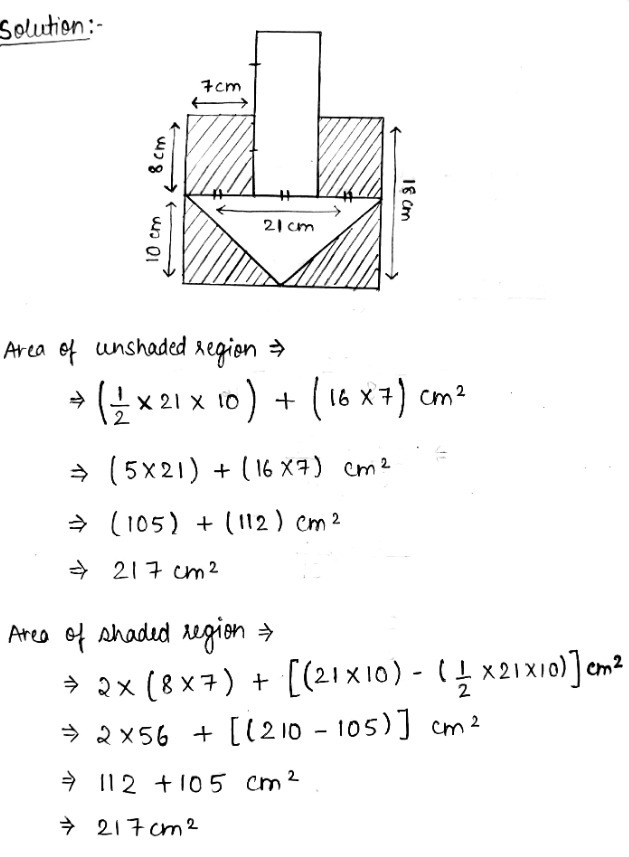 Solution:-
7cm
8 cm
18 cm
21 cm
10 cm
Area of unshaded region ⇒
⇒ (1/2 × 21 × 10) + (16 × 7) cm²
⇒ (5×21) + (16×7) cm²
⇒ (105) + (112) cm²
⇒ 217 cm²
Area of shaded region ⇒
⇒ 2× (8×7) + [(21×10) - (1/2 ×21×10)] cm²
⇒ 2×56 + [(210 - 105)] cm²
⇒ 112 +105 cm²
⇒ 217cm²